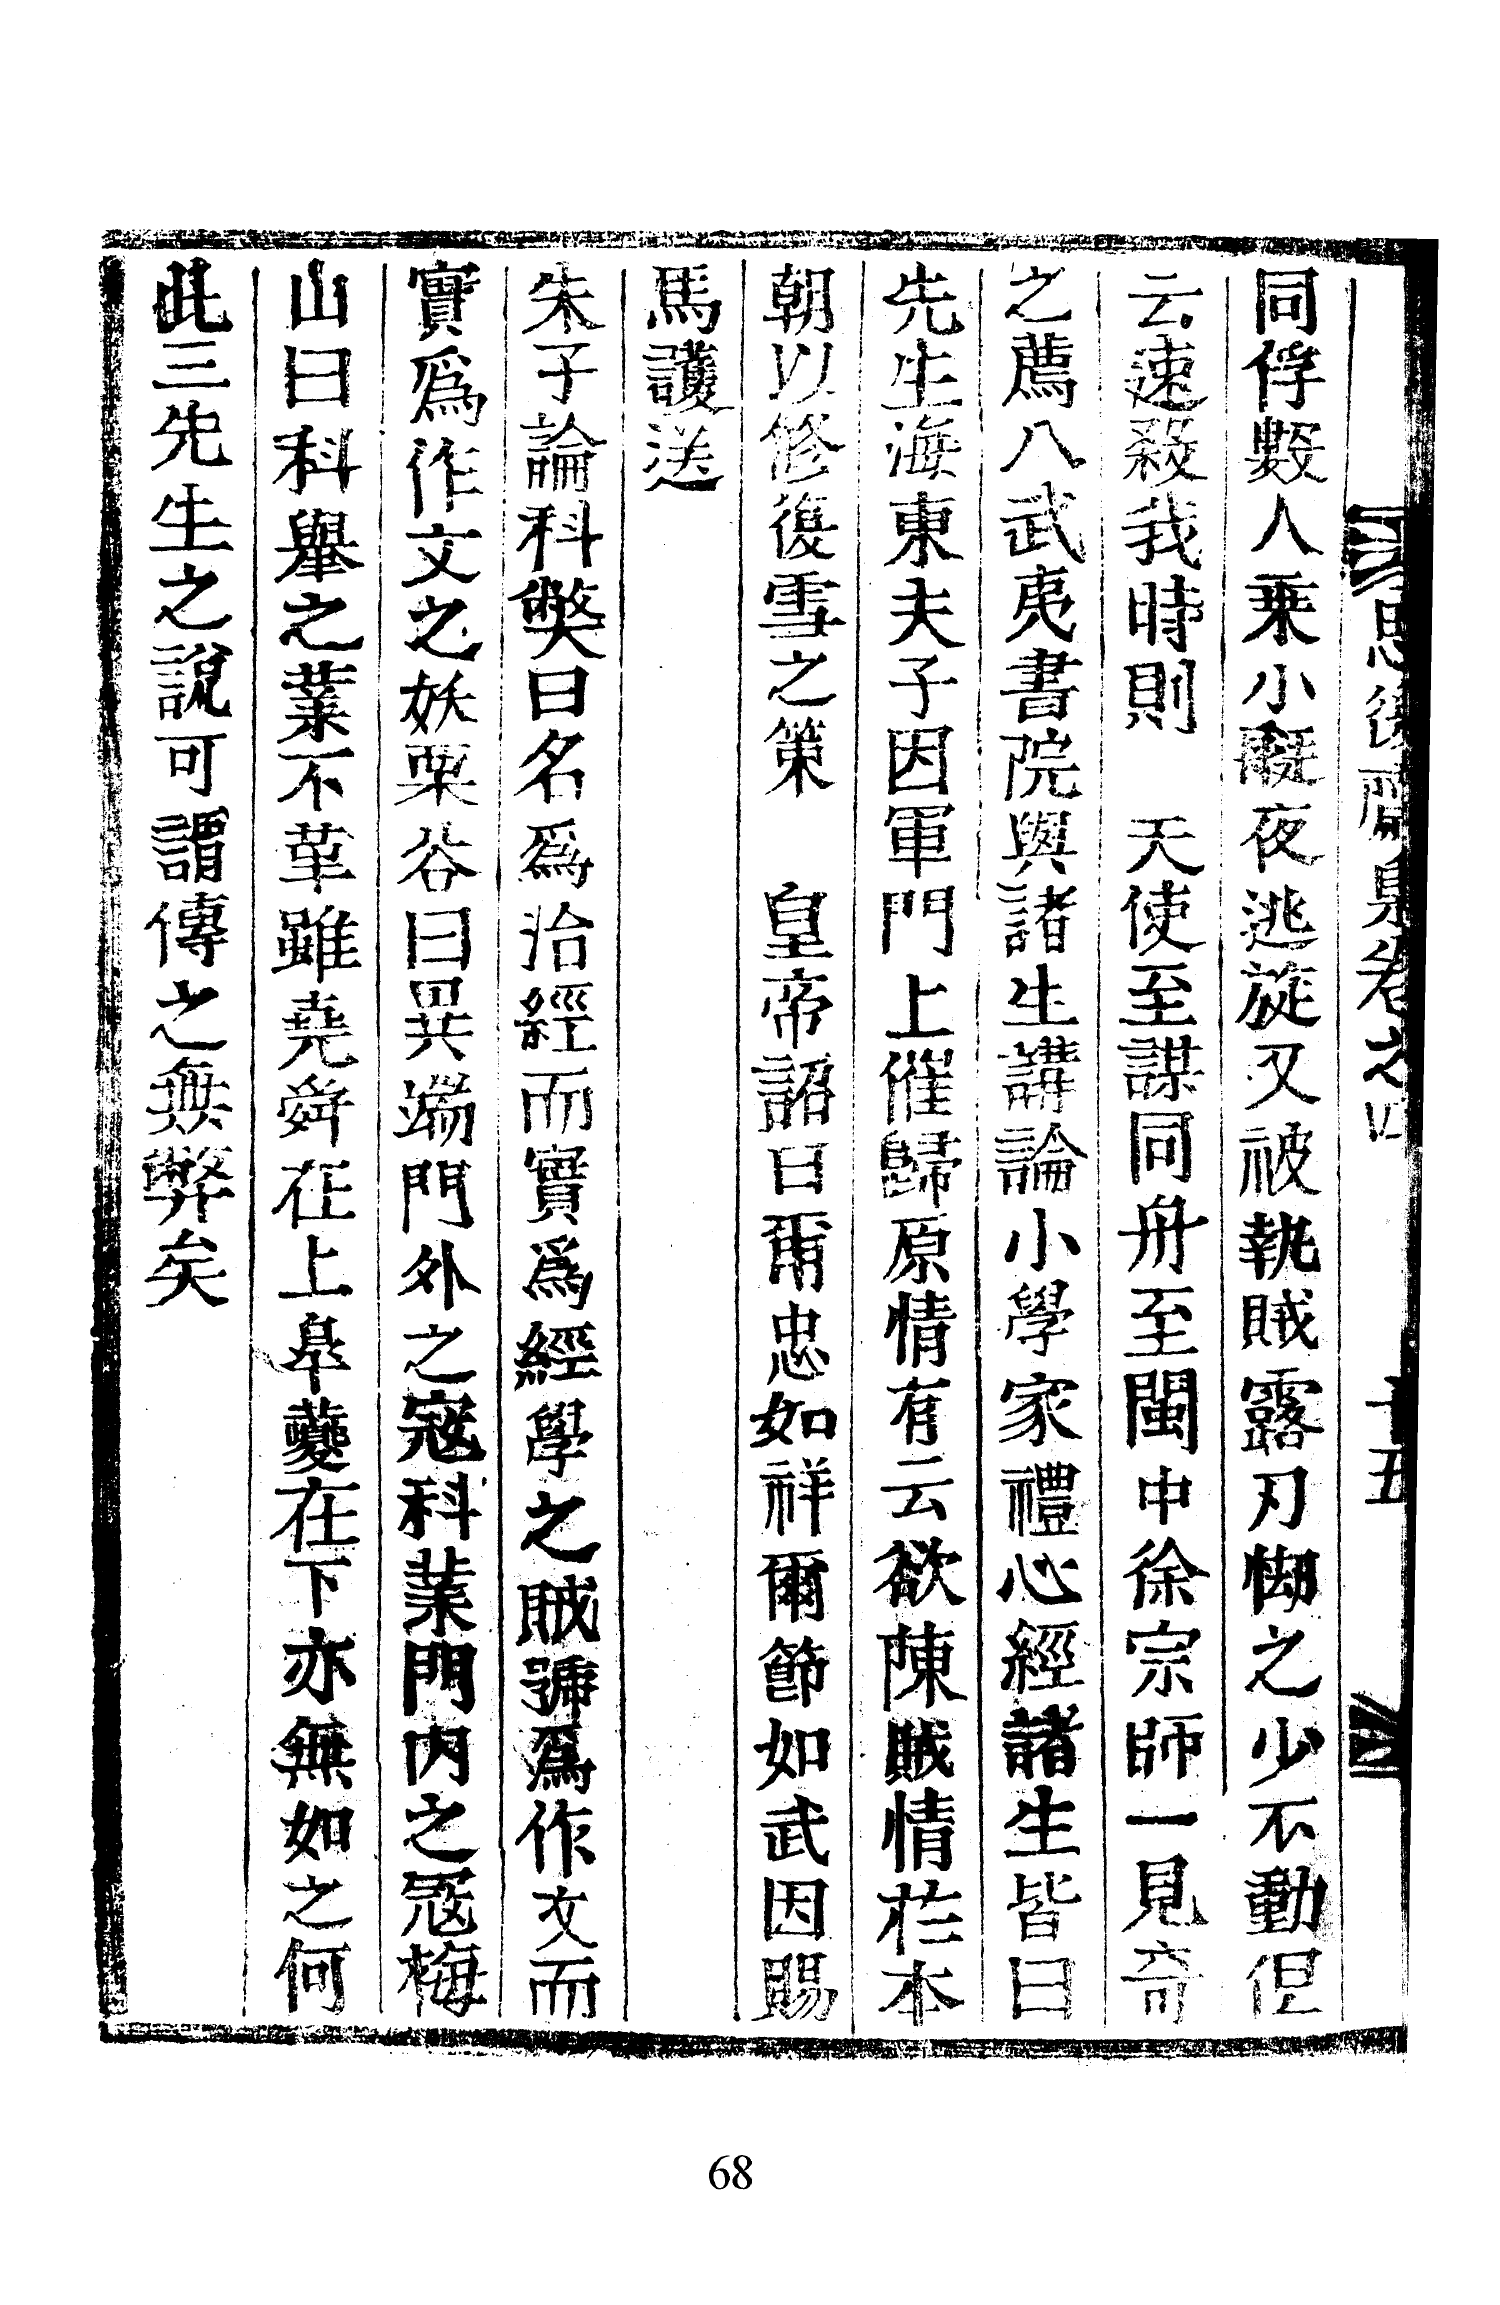 思後齋集卷之四
十五
同俘數人乘小艇夜逃旋又被執賊露刃㥘之少不動但
云速殺我時則　天使至謀同舟至閩中徐宗師一見奇
之薦八武夷書院與諸生講論小學家禮心經諸生皆曰
先生海東夫子因軍門上催歸原情有云欲陳賊情於本
朝以修復雪之策　皇帝詔曰爾忠如祥爾節如武因賜
馬護送
朱子論科弊曰名爲治經而實爲經學之賊號爲作文而
實爲作文之妖栗谷曰異端門外之寇科業門內之寇梅
山曰科擧之業不革雖堯舜在上皋夔在下亦無如之何
此三先生之說可謂傳之無弊矣
68